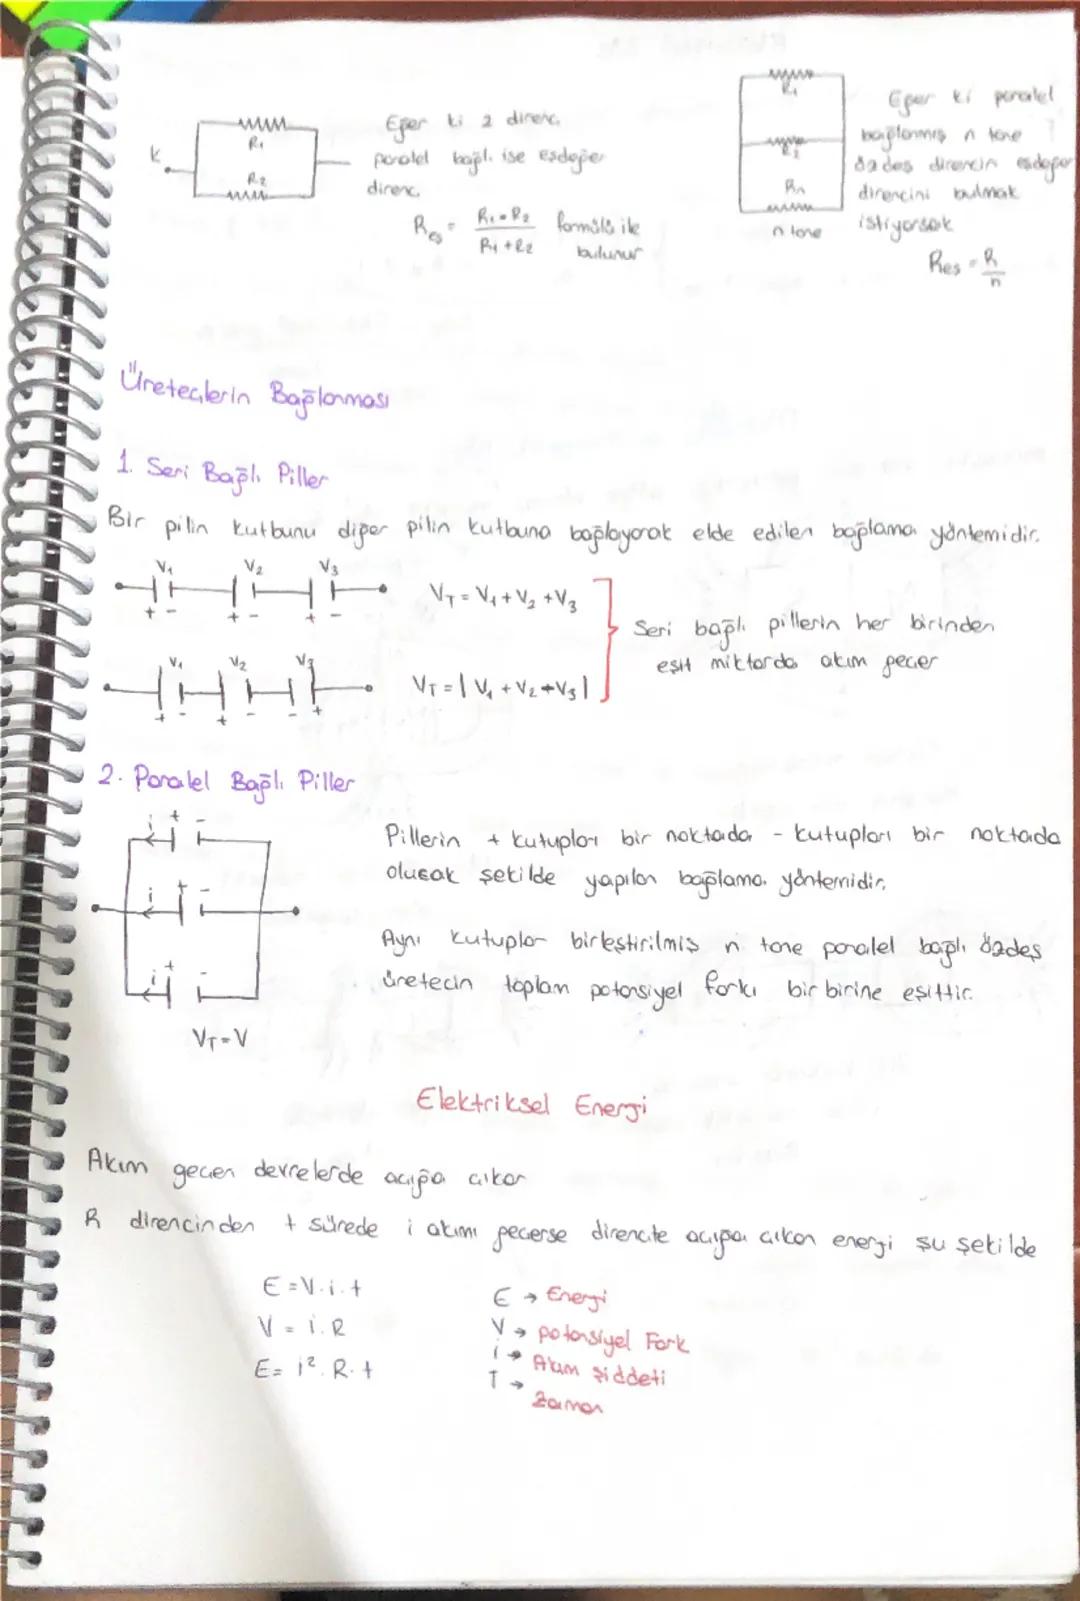 K
R₁
R₂
Eğer ki 2 direnc
paralel bağlı ise eşdeğer
direnc
Reş = R₁.R₂ / R₁+R₂ formülü ile
bulunur
R₁
R₂
Rn
n tane
Eğer ki paralel
bağlanmış n tane
özdeş direncin eşdeğer
direncini bulmak
istiyorsak
Res = R / n
Üreteçlerin Bağlanması
1. Seri Bağlı Piller
Bir pilin kutbunu diğer pilin kutbuna bağlayarak elde edilen bağlama yöntemidir.
V₁ V₂ V₃
+ - + - + -
V_T = V₁ + V₂ + V₃
Seri bağlı pillerin her birinden
eşit miktarda akım geçer
V₁ V₂ V₃
+ - + - - +
V_T = | V₁ + V₂ + V₃ |
2. Paralel Bağlı Piller
i + -
i + -
i + -
V_T = V
Pillerin + kutupları bir noktada - kutupları bir noktada
olucak şekilde yapılan bağlama yöntemidir.
Aynı kutuplar birleştirilmiş n tane paralel bağlı özdeş
üretecin toplam potansiyel farkı bir birine eşittir.
Elektriksel Enerji
Akım geçen devrelerde açığa çıkar
R direncinden t sürede i akımı geçerse dirençte açığa çıkan enerji şu şekilde
E = V.i.t
V = i.R
E = i².R.t
E → Enerji
V → potansiyel Fark
i → Akım şiddeti
T → Zaman